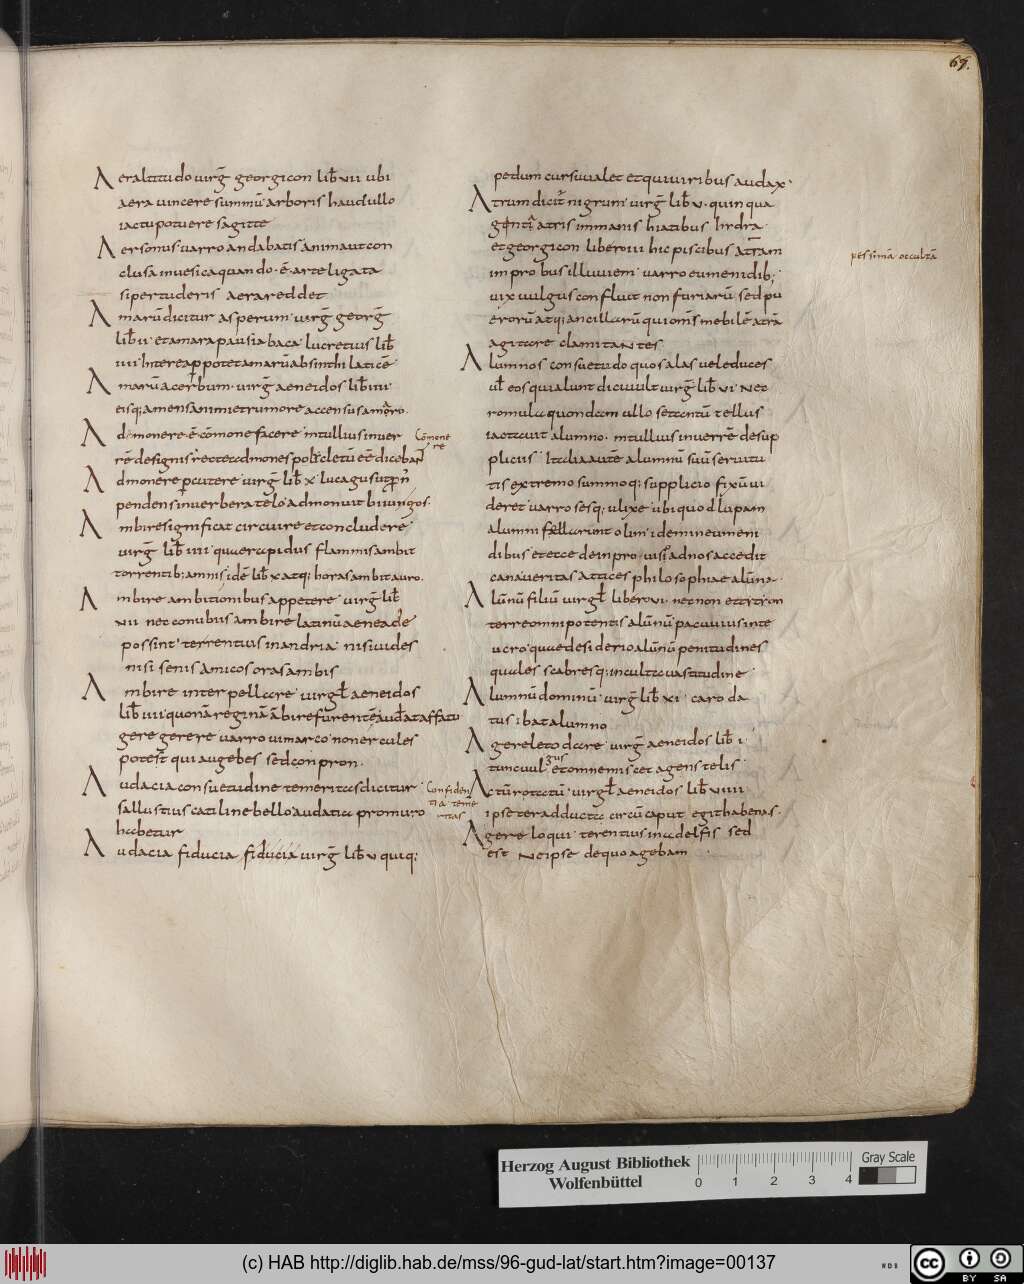 69.
Aeraltitudo uirḡ georgicon lib̄ uii ubi
aera uincere summū arboris haud ullo
iactu potuere sagitte
Aer sonus uarro andabatis anima ut con
clusa in uesica quando · ē · arte ligata
si pertuderis aera reddet
Amarū dicitur asperum uirḡ georḡ
lib̄ ii et amara pausia baca lucretius lib̄
iiii Inter eap potet amarū absinthi laticē
Amarū acerbum · uirḡ aeneidos lib̄ iiii
eisq; amens animi et rumore accensus amaro.
Admonere · ē cōmone facere m tullius in uer
rē de signis recte admones policletū eē dicoban
Cōmone
re
Admonere percutere uirḡ lib̄ x lucagus ut pron
pendens in uerbera telo admonuit biiungos.
Ambire significat circuire et concludere
uirḡ lib̄ iiii quae rapidus flammis ambit
torrentib; amnis idē lib̄ x atq; horas ambit auro.
Ambire ambitionibus appetere uirḡ lib̄
uii nec conubiis ambire latinū aeneadę
possint terrentius in andria nisi uides
nisi senis amicos oras ambis
Ambire interpellare uirgł aeneidos
lib̄ iiii quo nā reginā ābire furentē audeat affatu
gere gerere uarro uimarco non ercules
potest qui augebes sed conpron ·
Audacia consuetudine temeritas dicitur
sallustius catiline bello audatia pro muro
habetur
Confiden
tia teme
ritas
Audacia fiducia fiducia uirḡ lib̄ u quiq;
pedum cursu ualet et qui uiribus audax ·
Atrum dicit nigrum uirḡ lib̄ u · quinqua
ginta atris immanis hiatibus hidra ·
et georgicon libero iii hic piscibus atram
improbus illuuiem uarro eumenidib;
pessimā occultā
uix uulgus confluit non furiarū sed pu
erorū atq; ancillarū qui om̄s me bilē atrā
agitare clamitantes
Alumnos consuetudo quos alas uel educes
uł eos qui alunt dici uult uirḡ lib̄ ui Nec
romula quondam ullo se tantū tellus
iactauit alumno · m tullius in uerrē de sup
pliciis Italia autē alumnū suū seruitu
tis extremo summoq; supplicio fixū ui
deret uarro sesq; ulixe ubi quod lupam
alumni fellarunt olim idem in eumeni
dibus et ecce de inprouiso ad nos accedit
cana ueritas attices philosophiae alūna ·
Alūnū filiū uirgł libero ui · nec non et tytion
terre omnipotentis alūnū pacuuius in te
ucro quae desiderio alūnū penitudines
quales scabresq; inculta uastitudine
Alumnū dominū uirḡ lib̄ xi caro da
tus ibat alumno
Agere leto dare uirḡ aeneidos lib̄ i
tunc uulgus et omnem miscet agens telis
Actū rotatū uirgł aeneidos lib̄ uiiii
ipse ter adducta circū caput egit habenas ·
Agere loqui terentius in adelfis sed
est Ncipse de quo agebam
Herzog August Bibliothek
Wolfenbüttel
Gray Scale
0 1 2 3 4
(c) HAB http://diglib.hab.de/mss/96-gud-lat/start.htm?image=00137
WDB
cc BY SA